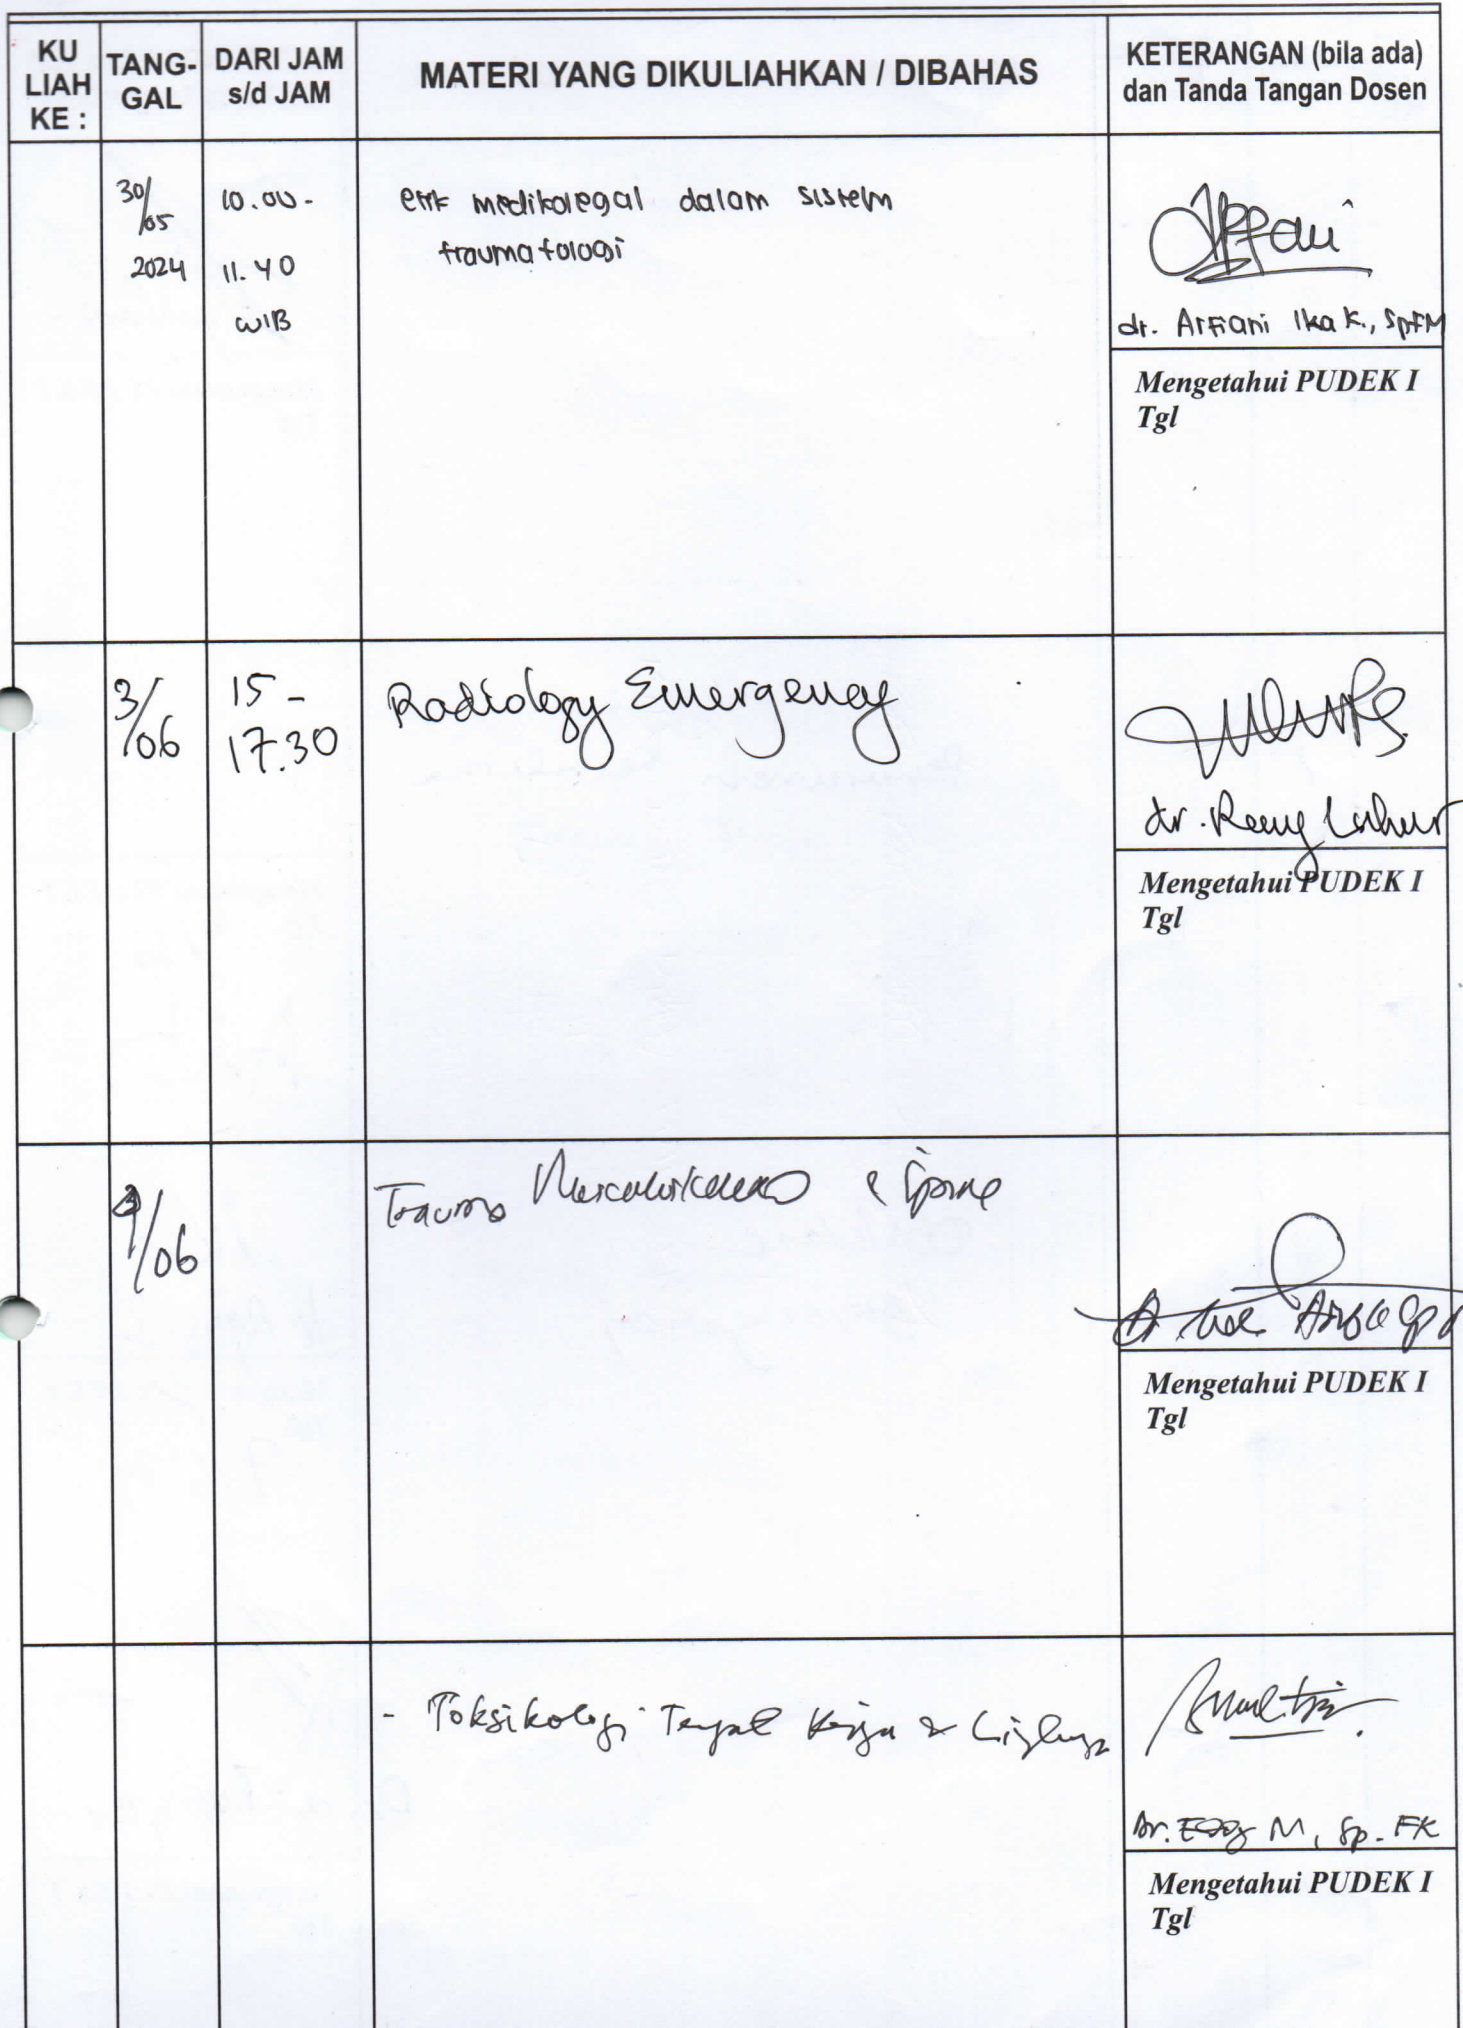 KU LIAH KE :
TANG-GAL
DARI JAM s/d JAM
MATERI YANG DIKULIAHKAN / DIBAHAS
KETERANGAN (bila ada) dan Tanda Tangan Dosen
30/05 2024
10.00 - 11.40 WIB
etik medikolegal dalam sistem
traumatologi
dr. Arfiani Ika K., SpFM
Mengetahui PUDEK I
Tgl
3/06
15 - 17.30
Radiology Emergency
dr.
Mengetahui PUDEK I
Tgl
/06
Trauma & Spine
Mengetahui PUDEK I
Tgl
- Toksikologi Tempat Kerja &
Dr. M, Sp. FK
Mengetahui PUDEK I
Tgl